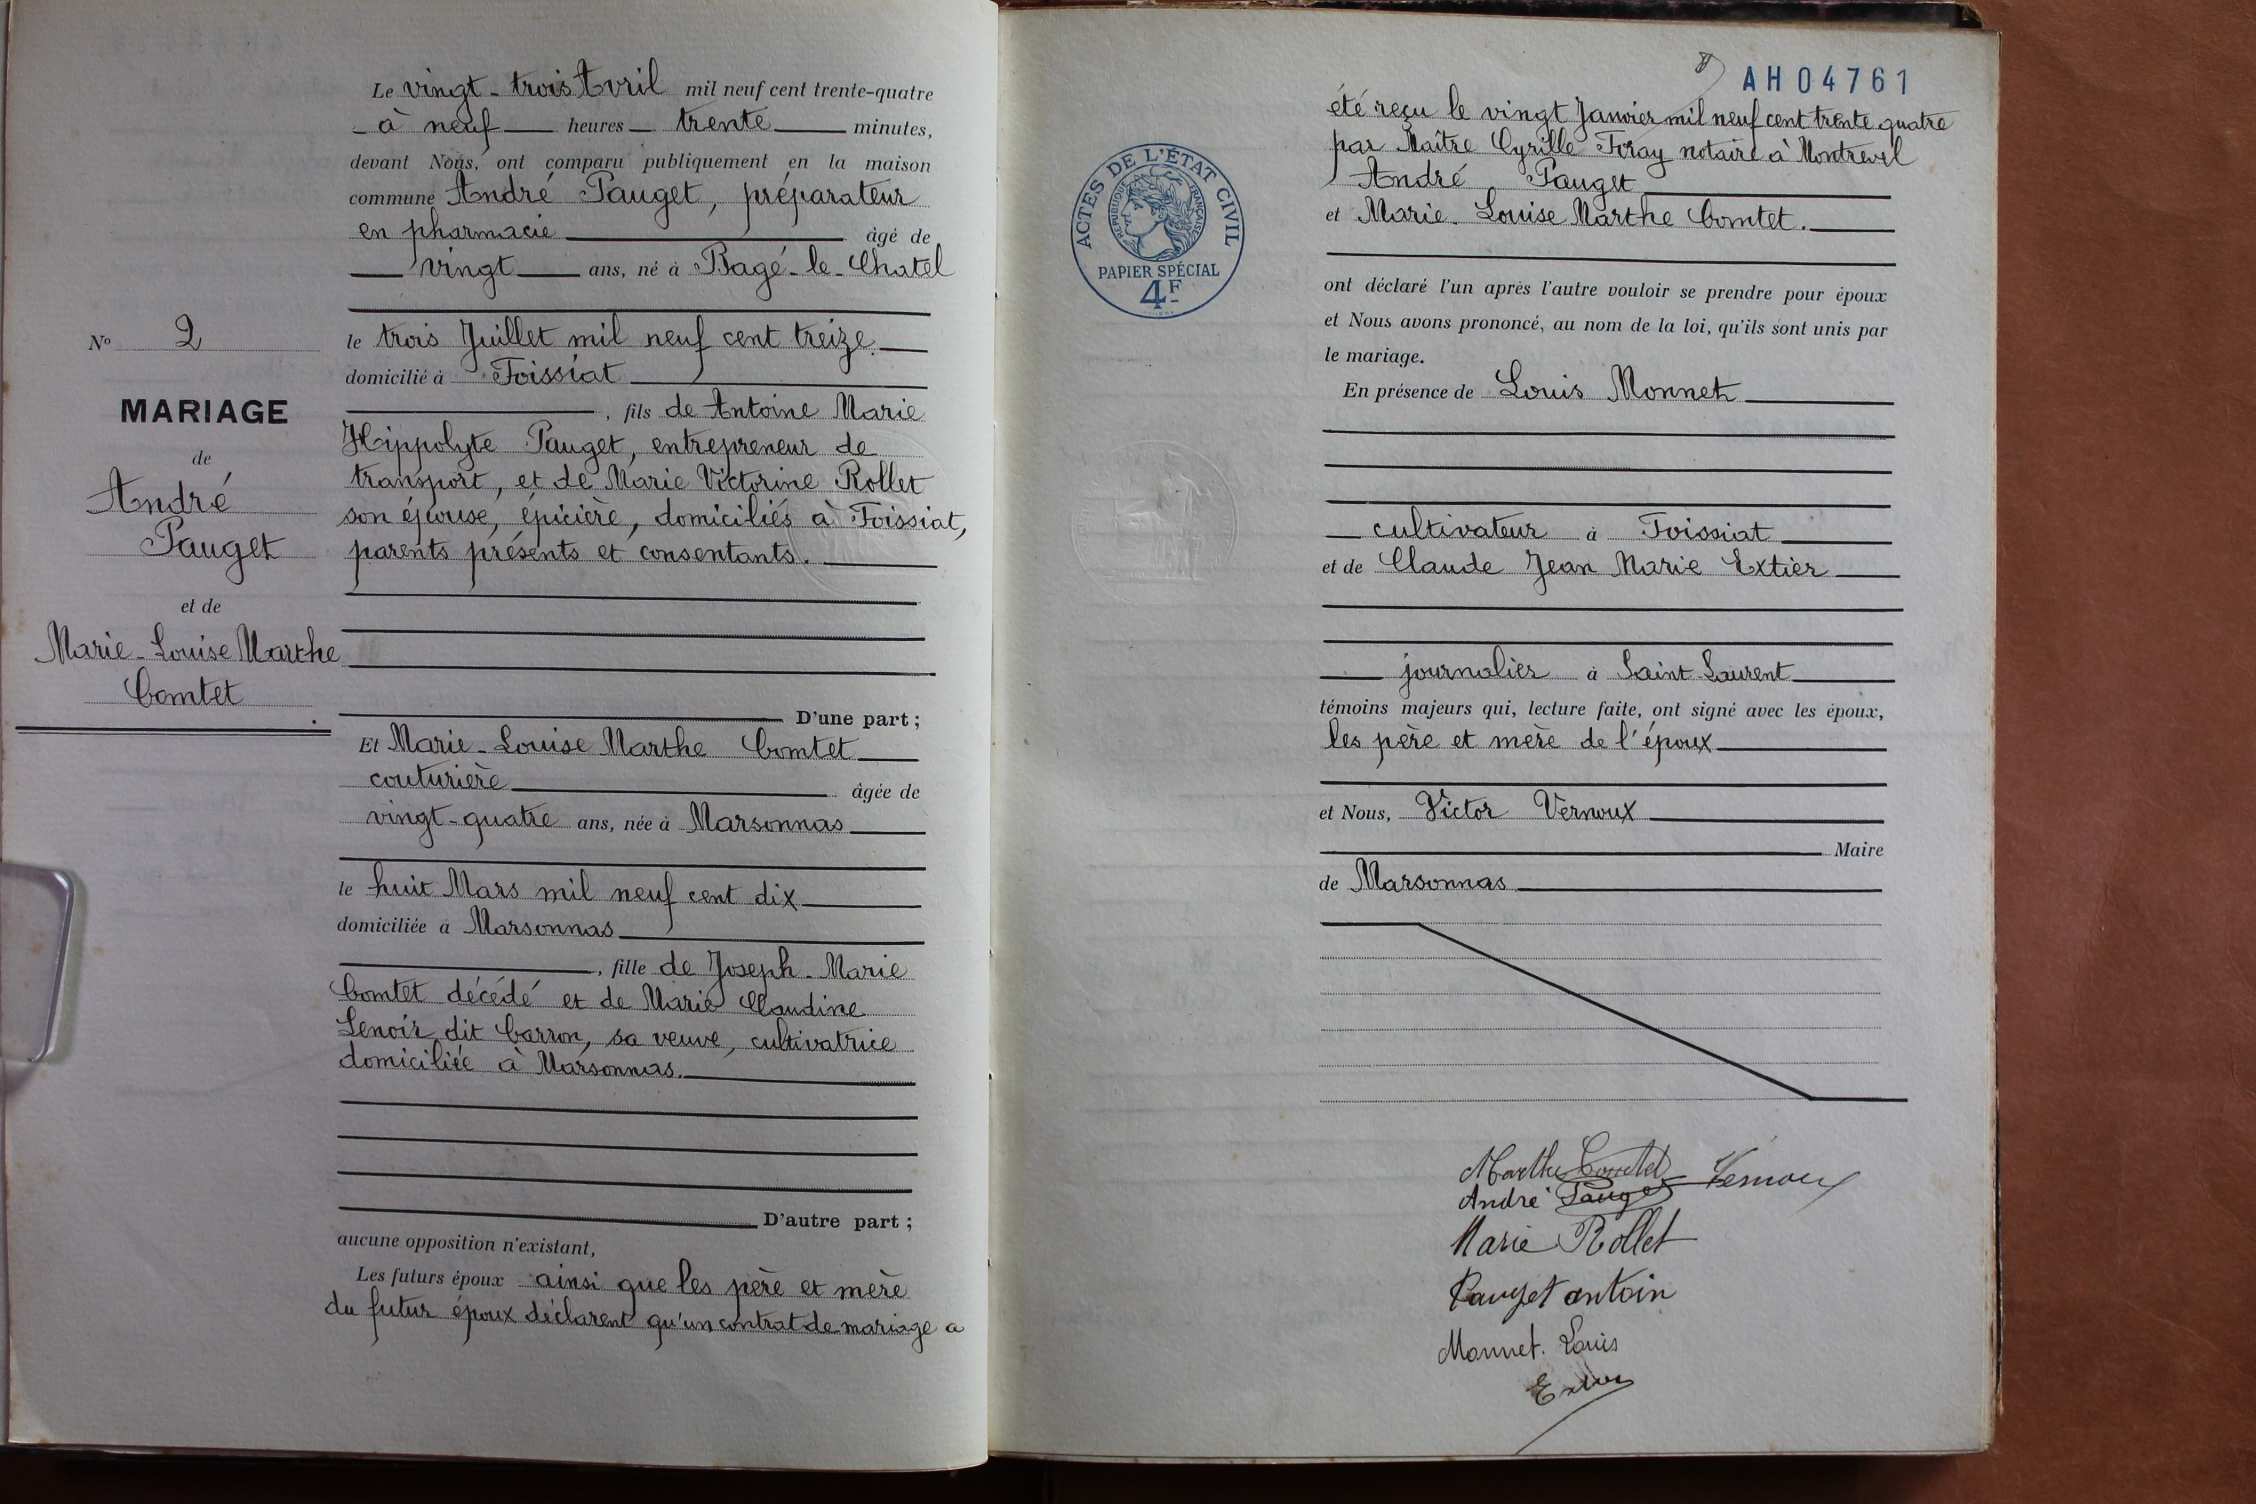 Nº 2
MARIAGE
de
André
Pauget
et de
Marie-Louise Marthe
Comtet
Le vingt-trois Avril mil neuf cent trente-quatre
à neuf heures trente minutes,
devant Nous, ont comparu publiquement en la maison
commune André Pauget, préparateur
en pharmacie âgé de
vingt ans, né à Bagé-le-Chatel
le trois Juillet mil neuf cent treize.
domicilié à Foissiat
, fils de Antoine Marie
Hippolyte Pauget, entrepreneur de
transport, et de Marie Victorine Rollet
son épouse, épicière, domiciliés à Foissiat,
parents présents et consentants.
D'une part ;
Et Marie-Louise Marthe Comtet
couturière âgée de
vingt-quatre ans, née à Marsonnas
le huit Mars mil neuf cent dix
domiciliée à Marsonnas
, fille de Joseph-Marie
Comtet décédé et de Marie Claudine
Lenoir dit Carron, sa veuve, cultivatrice
domiciliée à Marsonnas.
D'autre part ;
aucune opposition n'existant,
Les futurs époux ainsi que les père et mère
du futur époux déclarent qu'un contrat de mariage a
8
AH04761
ACTES DE L'ÉTAT CIVIL
REPUBLIQUE FRANÇAISE
PAPIER SPÉCIAL
4F
été reçu le vingt Janvier mil neuf cent trente quatre
par Maître Cyrille Foray notaire à Montrevel
André Pauget
et Marie-Louise Marthe Comtet.
ont déclaré l'un après l'autre vouloir se prendre pour époux
et Nous avons prononcé, au nom de la loi, qu'ils sont unis par
le mariage.
En présence de Louis Monnet
cultivateur à Foissiat
et de Claude Jean Marie Extier
journalier à Saint-Laurent
témoins majeurs qui, lecture faite, ont signé avec les époux,
les père et mère de l'époux
et Nous, Victor Vernoux
Maire
de Marsonnas
Marthe Comtet Vernoux
André Pauget
Marie Rollet
Pauget antoin
Monnet. Louis
Extier